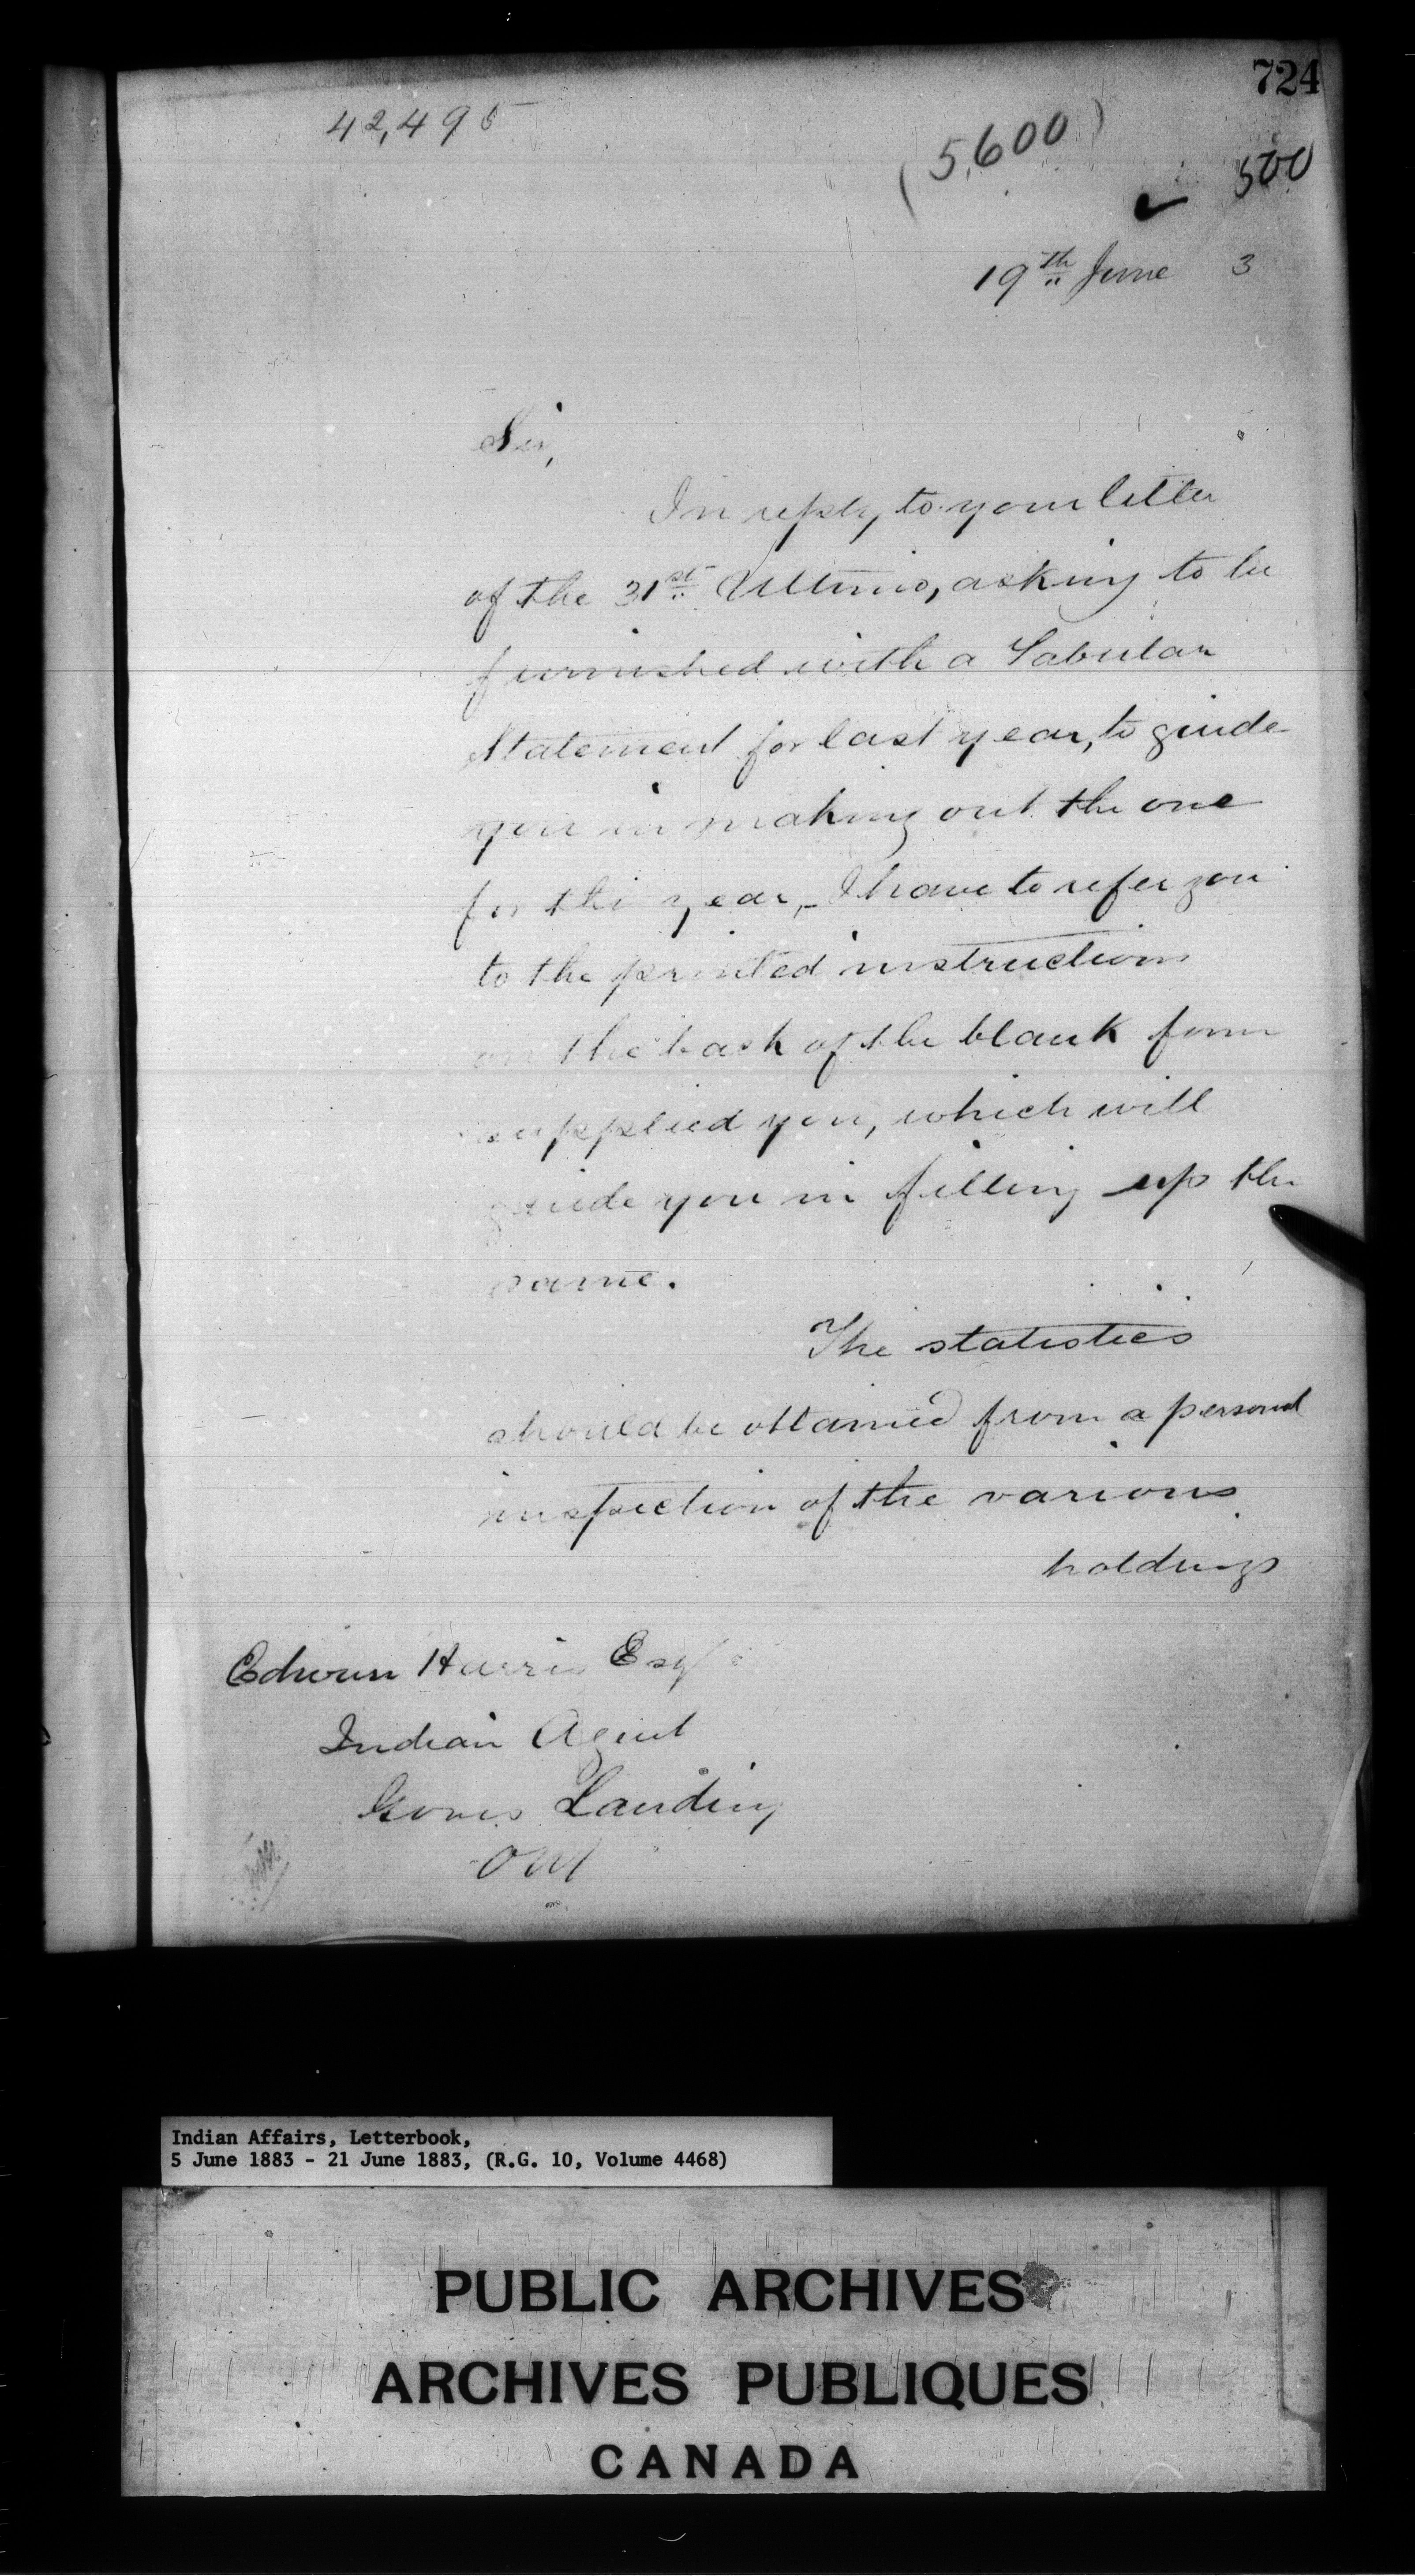 724
42,495
(5,600)
500
19th June 3
Sir,
In reply to your letter
of the 31st Ultimo, asking to be
furnished with a Tabular
Statement for last year, to guide
you in making out the one
for this year,– I have to refer you
to the printed instructions
on the back of the blank form
supplied you, which will
guide you in filling up the
same.
The statistics
should be obtained from a personal
inspection of the various
holdings
Edwin Harris Esq
Indian Agent
Gores Landing
Ont
Indian Affairs, Letterbook,
5 June 1883 - 21 June 1883, (R.G. 10, Volume 4468)
PUBLIC ARCHIVES
ARCHIVES PUBLIQUES
CANADA